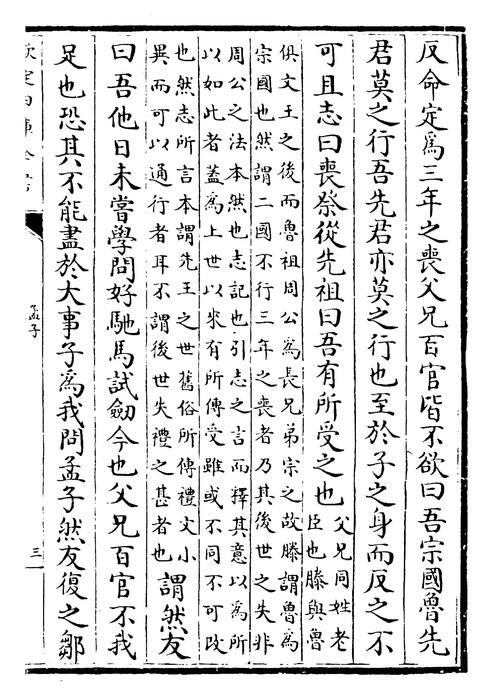 反命定爲三年之喪父兄百官皆不欲曰吾宗國魯先
君莫之行吾先君亦莫之行也至於子之身而反之不
可且志曰喪祭從先祖曰吾有所受之也
父兄同姓老
臣也滕與魯
俱文王之後而魯祖周公為長兄弟宗之故滕謂魯為
宗國也然謂二國不行三年之喪者乃其後世之失非
周公之法本然也志記也引志之言而釋其意以為所
以如此者蓋為上世以來有所傳受雖或不同不可改
也然志所言本謂先王之世舊俗所傳禮文小
異而可以通行者耳不謂後世失禮之甚者也
謂然友
曰吾他日未嘗學問好馳馬試劔今也父兄百官不我
足也恐其不能盡於大事子爲我問孟子然友復之鄒
欽定四庫全書
孟子
三